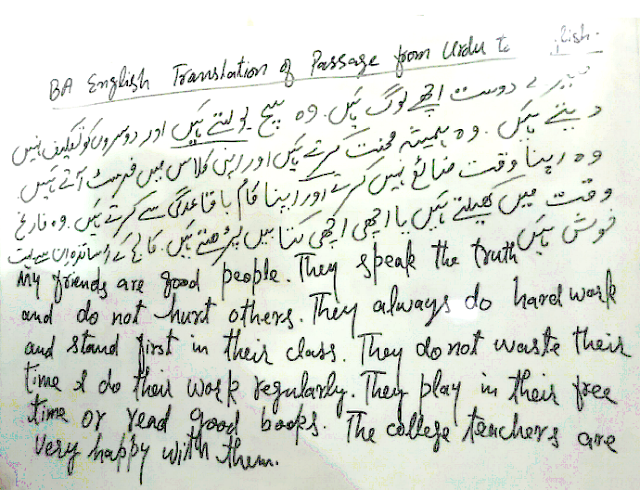 BA English Translation of Passage from Urdu to lish.
میرے دوست اچھے لوگ ہیں۔ وہ سچ بولتے ہیں اور دوسروں کو تکلیف نہیں
دیتے ہیں۔ وہ ہمیشہ محنت کرتے ہیں اور اپنی کلاس میں فرسٹ آتے ہیں۔
وہ اپنا وقت ضائع نہیں کرتے اور اپنا کام باقاعدگی سے کرتے ہیں۔ وہ فارغ
وقت میں کھیلتے ہیں یا اچھی اچھی کتابیں پڑھتے ہیں۔ کالج کے اساتذہ ان سے بہت
خوش ہیں
My friends are good people. They speak the truth
and do not hurt others. They always do hard work
and stand first in their class. They do not waste their
time & do their work regularly. They play in their free
time or read good books. The college teachers are
very happy with them.